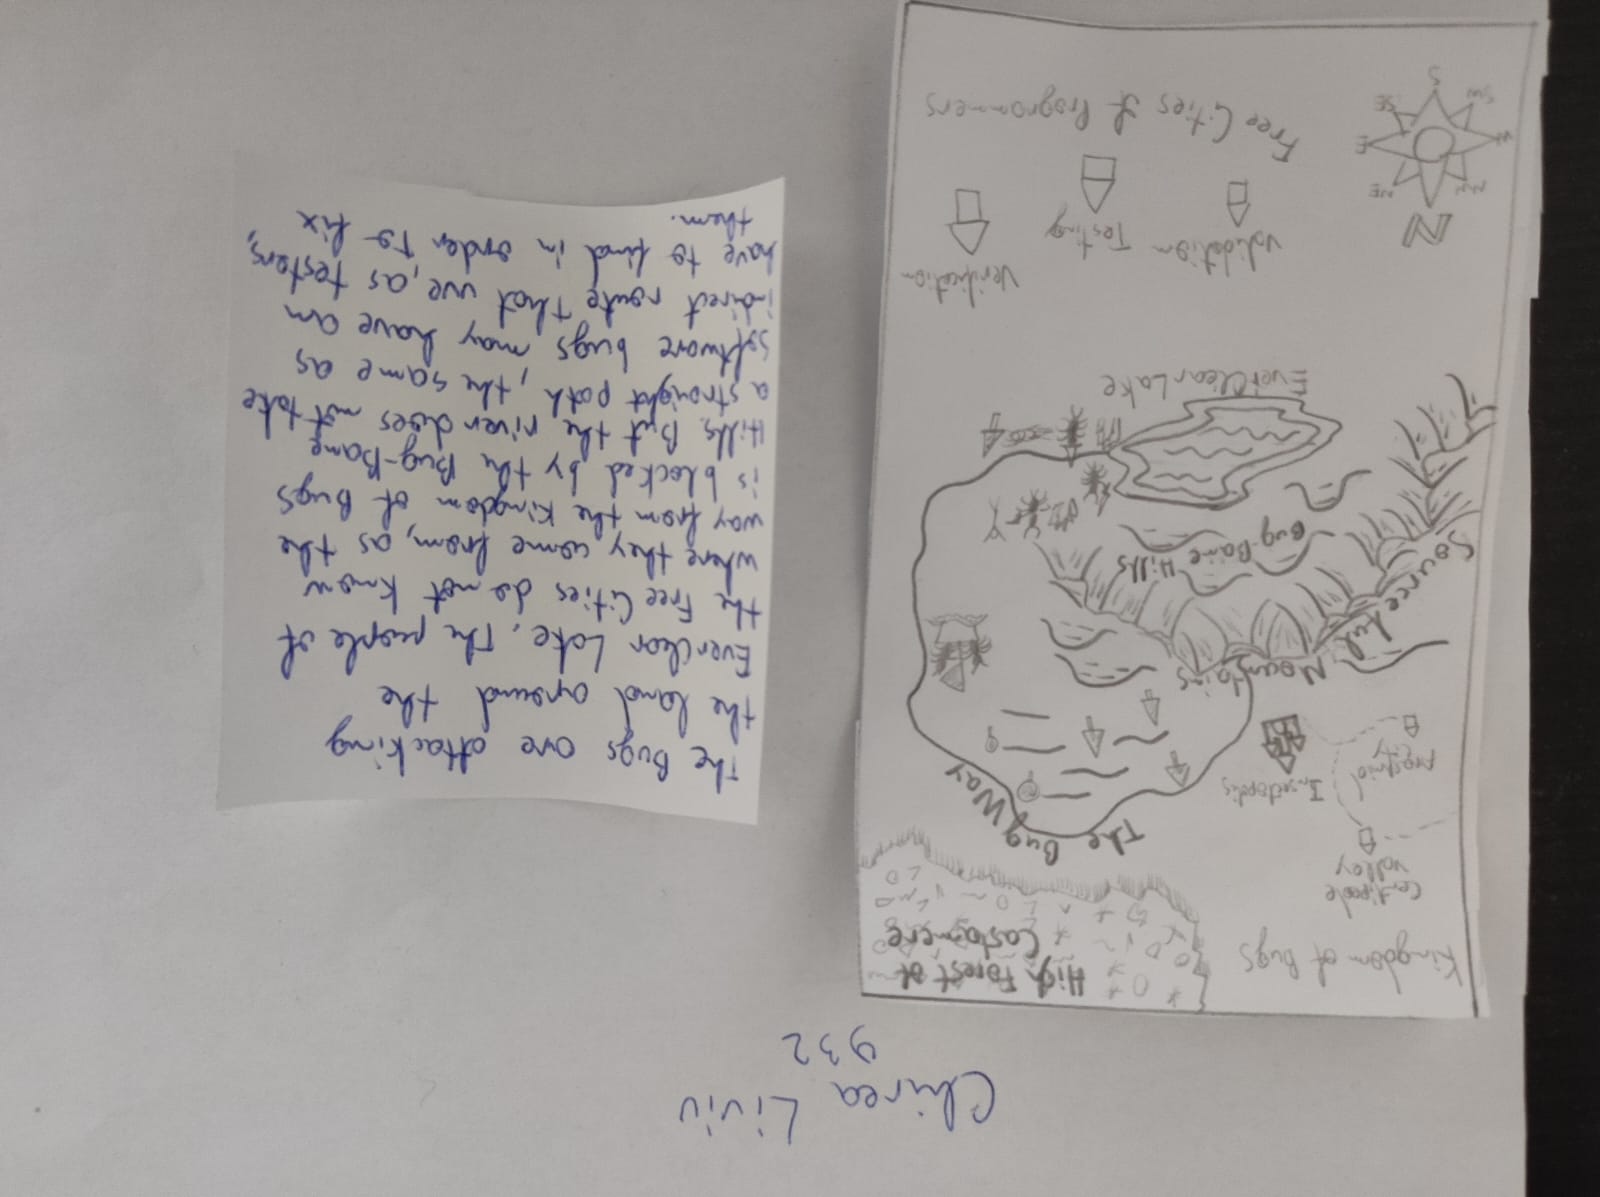 Chirea Liviu
932
Kingdom of Bugs
High Forest of
Castamere
Centipede
valley
The Bug Way
Insectopolis
Arachnid
city
Sourceful Mountains
Bug-Bane Hills
EverClear Lake
Verification
Validation
Testing
Free Cities of Programmers
N
NW
NE
W
E
SW
SE
S
The Bugs are attacking
the land around the
EverClear Lake. The people of
the Free Cities do not know
where they come from, as the
way from the Kingdom of Bugs
is blocked by the Bug-Bane
Hills. But the river does not take
a straight path, the same as
software bugs may have an
indirect route that we, as testers,
have to find in order to fix
them.